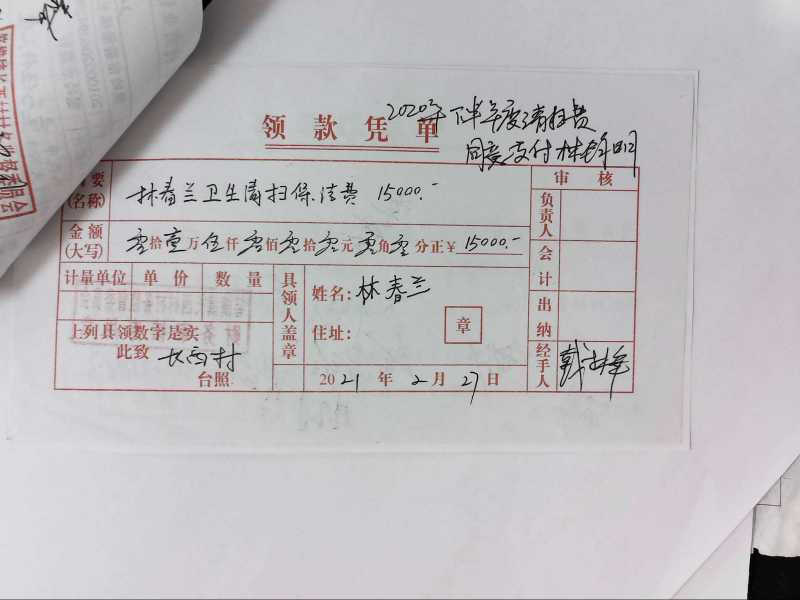 2020年下半年度清扫费
领款凭单
同意支付
摘要(名称) 林春兰卫生清扫保洁费 15000.- 审核
金额(大写) 零拾壹万伍仟零佰零拾零元零角零分正¥ 15000.- 负责人
会计
计量单位 单价 数量 具领人盖章 姓名: 林春兰
出纳
上列具领数字是实 住址: 章
此致 长西村
台照 2021年2月27日 经手人